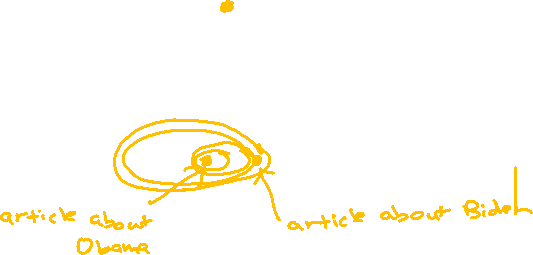 article about
Obama
article about Biden